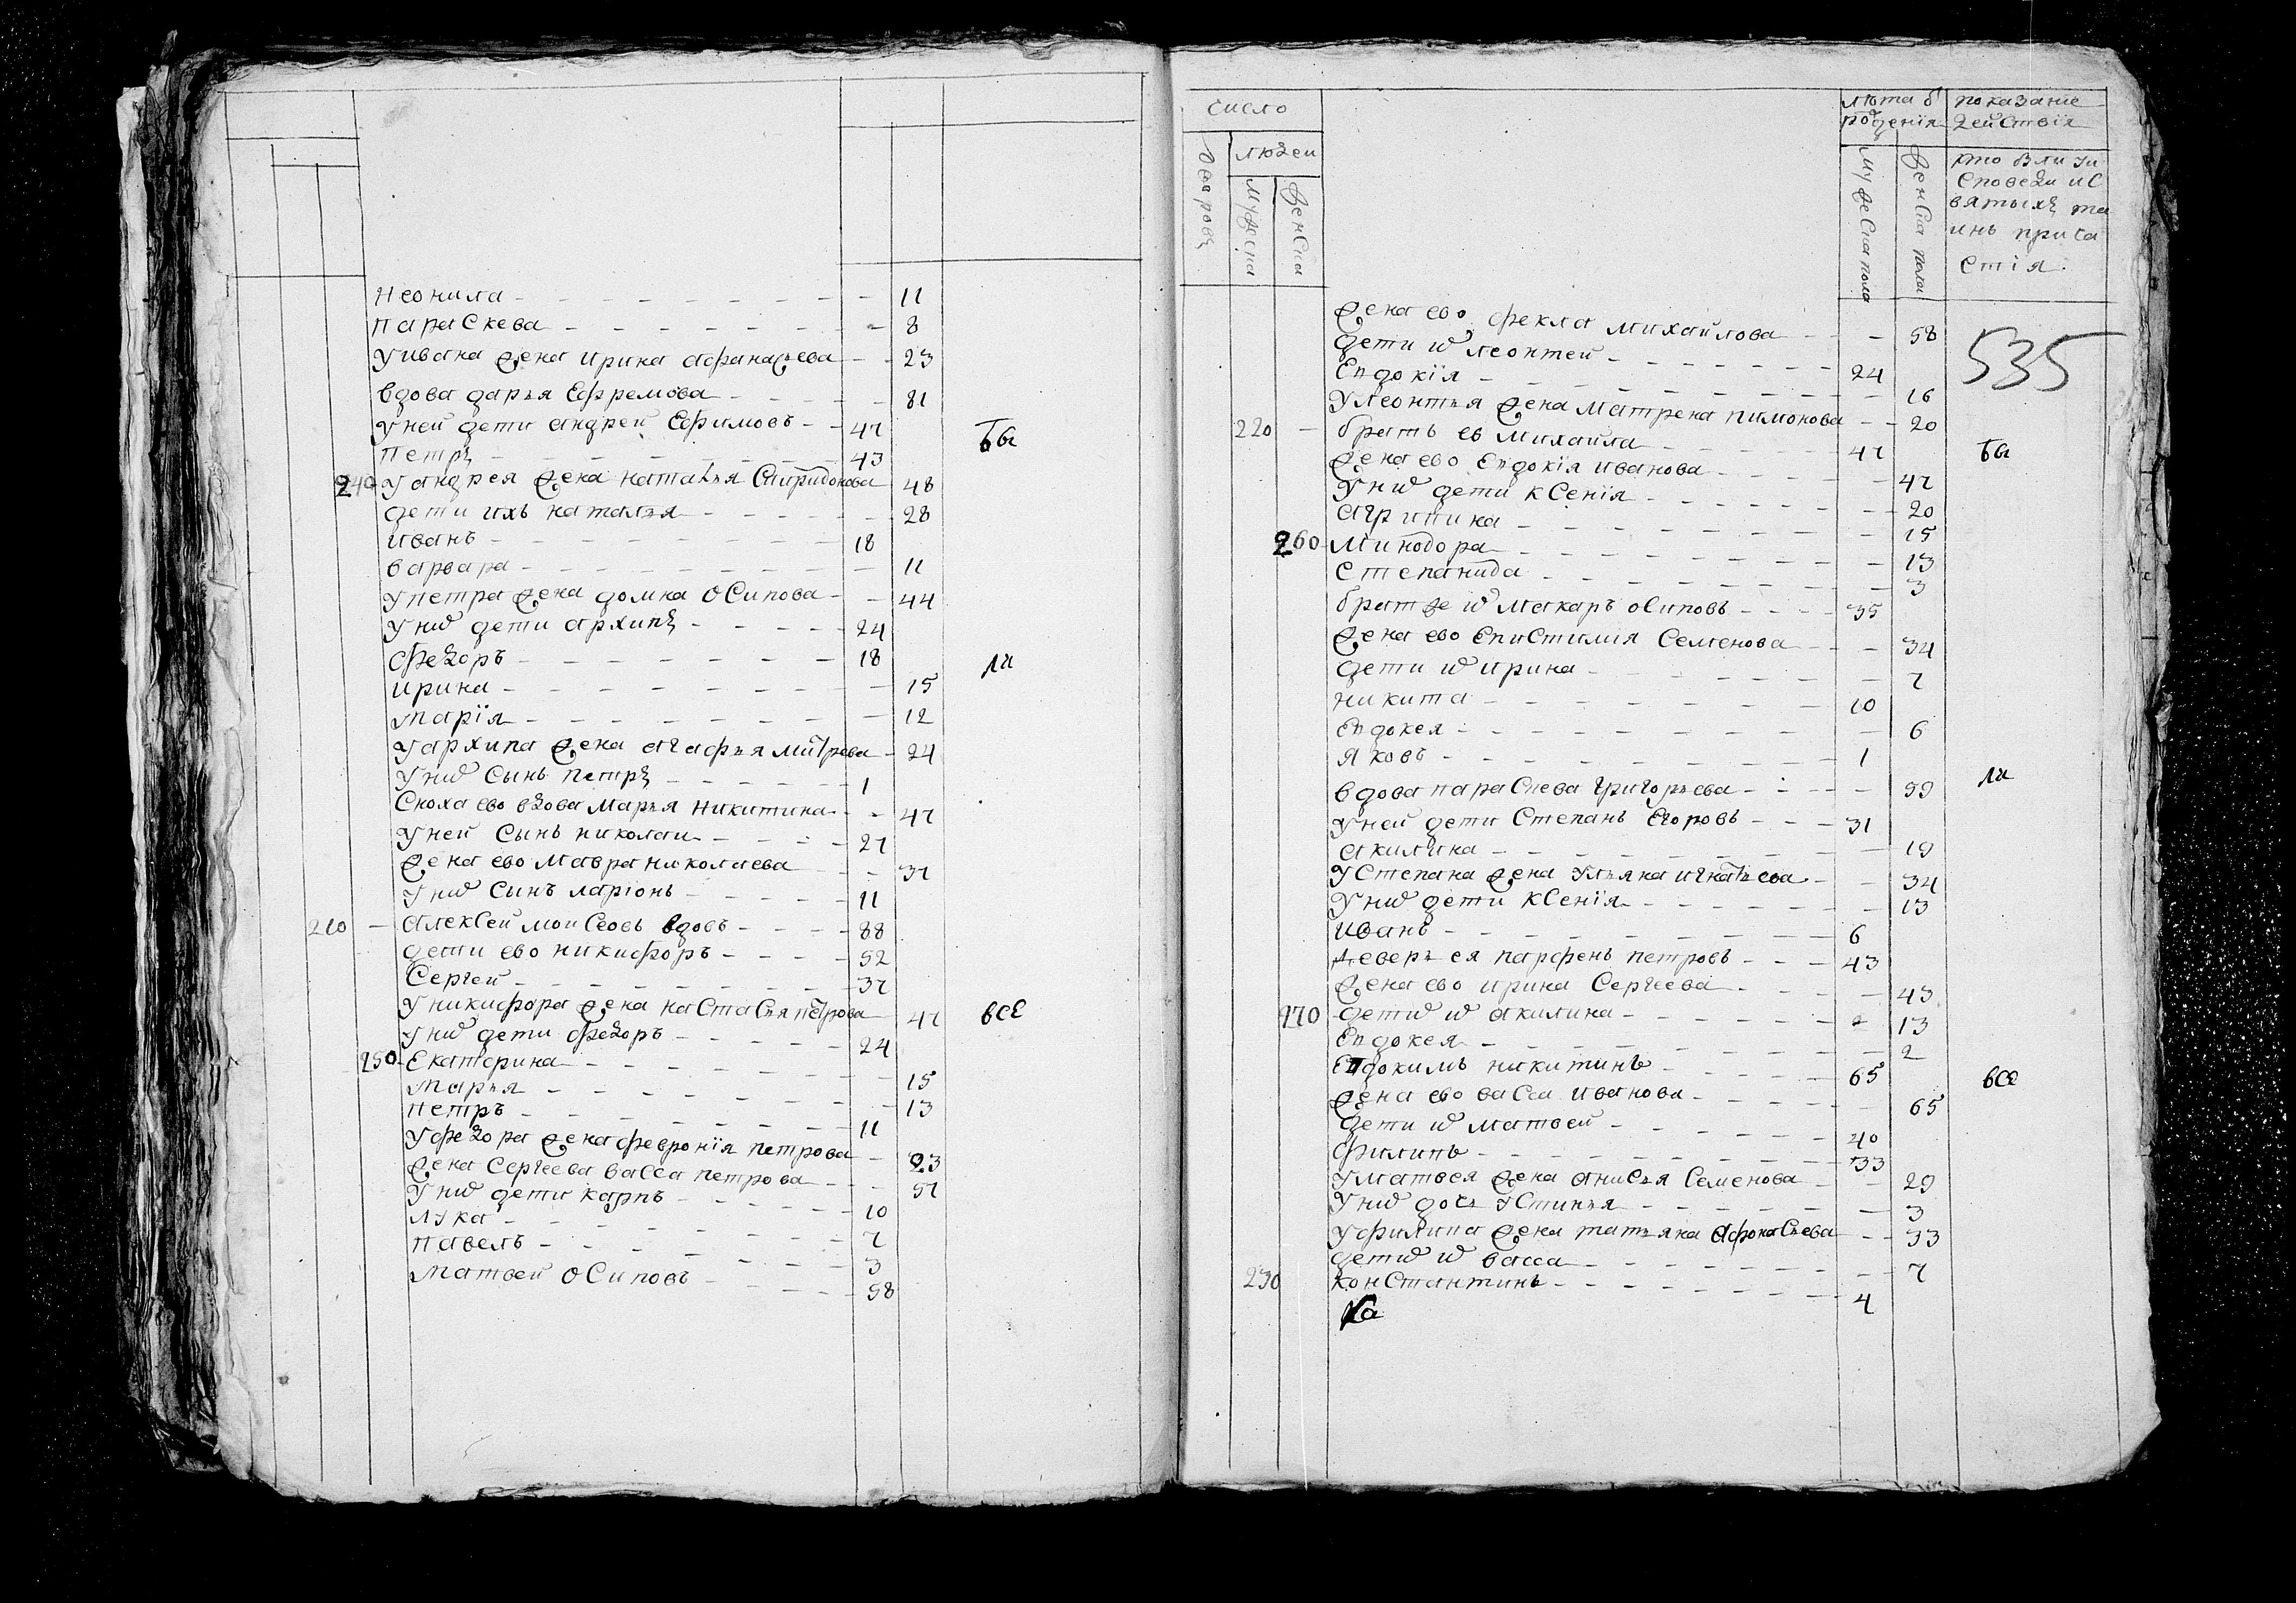 Неонила - 11
параскева - 8
Уивана жена ирина афанасьева - 23
вдова дарья Ефремова - 81
Уней дети андрей Ефимовъ - 47
бы
петръ - 43
240 Уандрея жена наталья Спиридонова 48
дети ихъ наталья - 28
иванъ - 18
варвара - 11
Упетра жена домна осипова - 44
Унихъ дети архипъ - 24
федоръ - 18
ли
ирина - 15
марїя - 12
Уархипа жена агафья митрева - 24
Унихъ сынъ петръ - 1
Сноха ево вдова марья никитина - 47
Уней сынъ николаи - 27
жена ево мавра николаева - 37
Унихъ сынъ ларионъ - 11
210 - алексей моисеовъ вдовъ - 88
дети ево никифоръ - 52
Сергей - 37
Уникифора жена настасья петрова 47
все
Унихъ дети федоръ - 24
250 Екатерина - 15
марья - 13
петръ - 11
Уфедора жена февронїя петрова - 23
жена Сергеева васса петрова - 57
Унихъ дети карпъ - 10
лука - 7
павелъ - 3
матвей осиповъ - 58
число
лѣта ѿ рожденїя
показание действїя
дворовъ
людеи
мужеска
женска
мужеска пола
женска пола
кто были уи
споведи и с
вятыхъ та
инъ прича
стїя.
535
жена ево фекла михайлова - 58
дети ихъ леонтей - 24
Евдокїя - 16
Улеонтья жена матрена пимонова - 20
220 - братъ ев михаила - 47
бы
жена ево Евдокїя иванова - 47
Унихъ дети ксенїя - 20
агрипина - 15
260 минодора - 13
степанида - 3
братже ихъ макаръ осиповъ - 35
жена ево епистимїя семенова - 34
дети ихъ ирина - 7
никита - 10
Евдокея - 6
яковъ - 1
ли
вдова параскева григорьева - 59
Уней дети Степанъ Егоровъ - 31
акилина - 19
УСтепана жена ульяна игнатьева - 34
Унихъ дети ксенїя - 13
иванъ - 6
деверь ея парфенъ петровъ - 43
жена ево ирина Сергеева - 43
270 дети ихъ акилина - 13
Евдокея - 2
Евдокимъ никитинъ - 65
все
жена ево васса иванова - 65
дети ихъ матвей - 40
филипъ - 33
Уматвея жена анисья семенова - 29
Унихъ дочь устинья - 3
Уфилипа жена татьяна афонасьева - 33
дети ихъ васса - 7
230 константинъ - 4